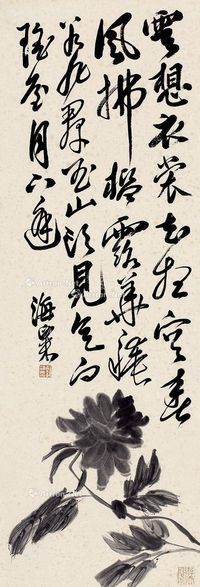 雲想衣裳花想容春
風拂檻露華濃
若非羣玉山頭見會向
瑤臺月下逢
海粟